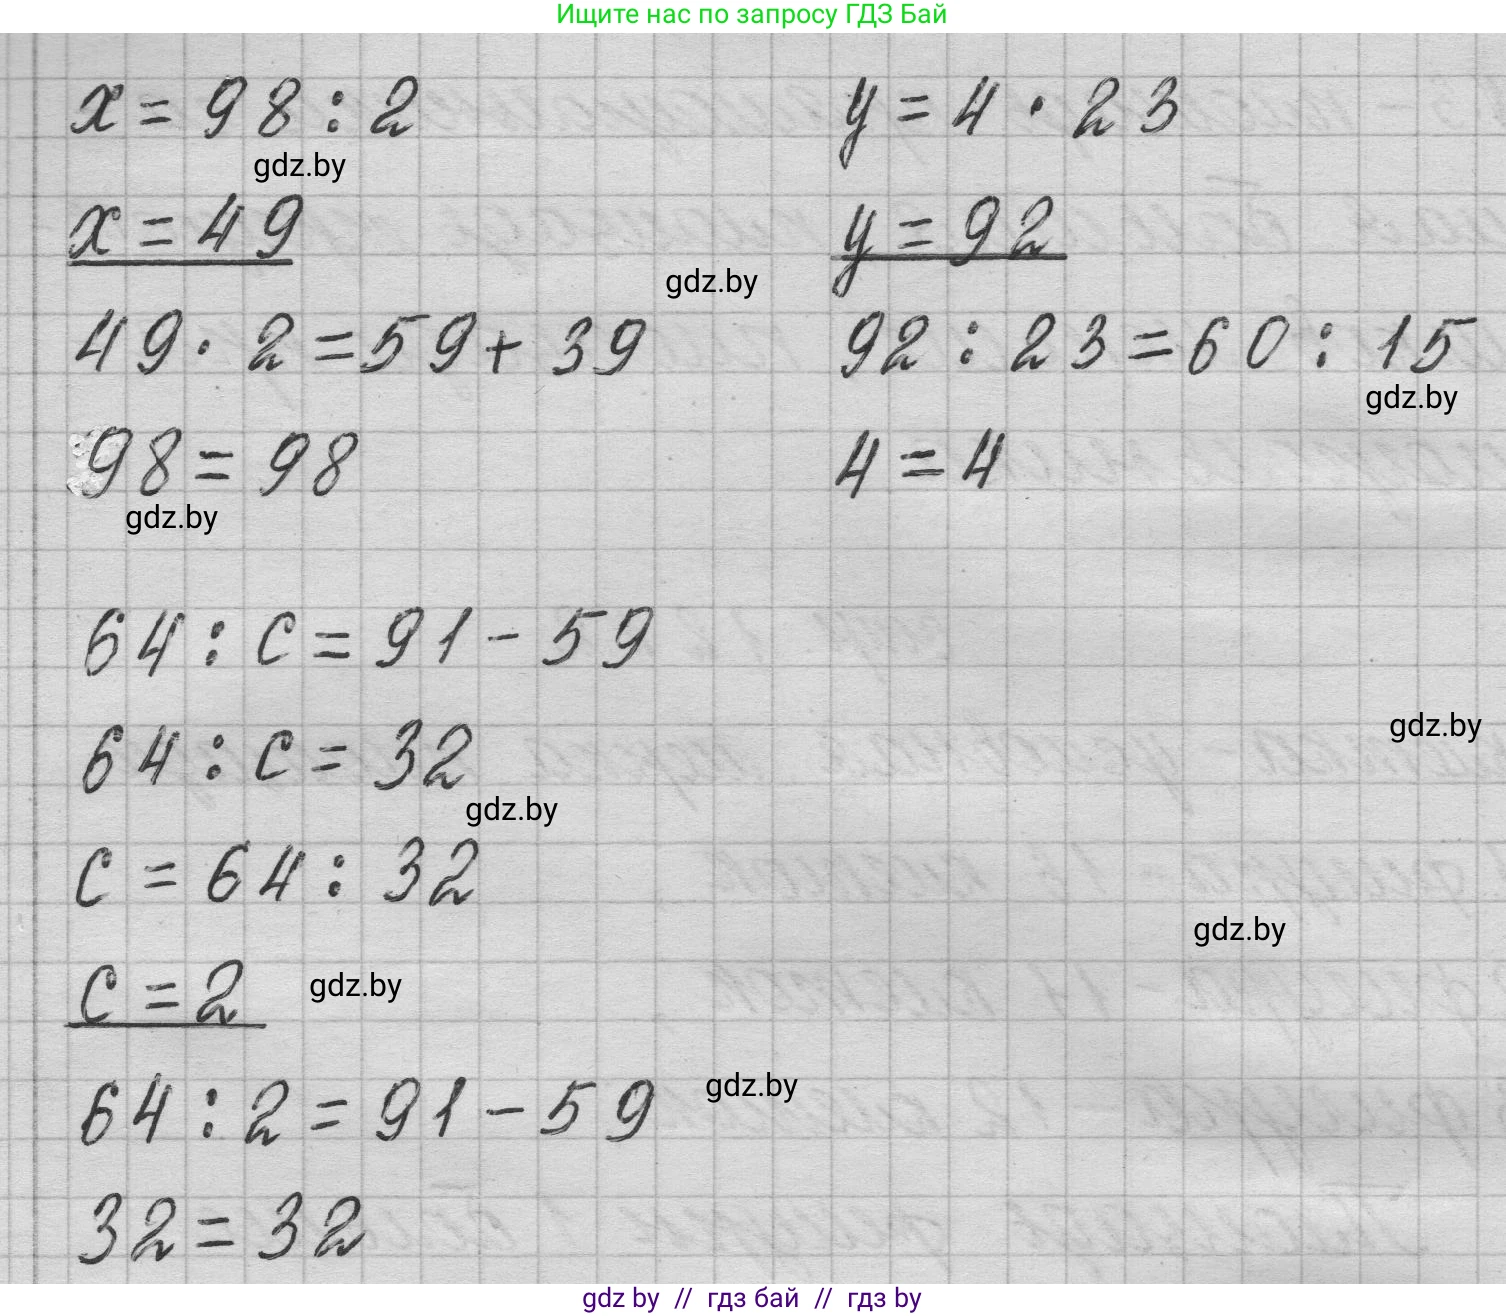 Ищите нас по запросу ГДЗ Бай
x = 98 : 2
y = 4 · 23
gdz.by
x = 49
y = 92
gdz.by
49 · 2 = 59 + 39
92 : 23 = 60 : 15
gdz.by
98 = 98
4 = 4
gdz.by
64 : c = 91 - 59
64 : c = 32
gdz.by
gdz.by
c = 64 : 32
gdz.by
c = 2
gdz.by
64 : 2 = 91 - 59
gdz.by
32 = 32
gdz by // гдз бай // гдз by